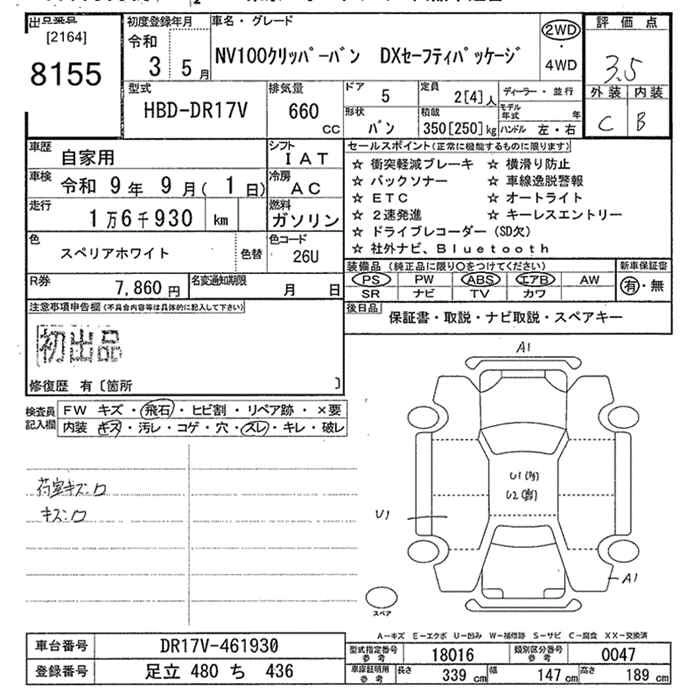 出品票
[2164]
8155
初度登録年月
令和
3 5月
車名・グレード
NV100クリッパーバン DXセーフティパッケージ
2WD
・
4WD
評価点
3.5
外装 内装
C B
型式
HBD-DR17V
排気量
660 CC
ドア 5
形状 バン
定員 2[4]人
積載 350[250]kg
ディーラー・並行
モデル年式 年
ハンドル 左・右
車歴 自家用
シフト IAT
車検 令和 9年 9月(1日)
冷房 AC
走行 1万6千930 km
燃料 ガソリン
色 スペリアホワイト
色替
色コード 26U
R券 7,860円
名変通知期限 月 日
セールスポイント(正常に機能するものに限ります)
☆ 衝突軽減ブレーキ ☆ 横滑り防止
☆ バックソナー ☆ 車線逸脱警報
☆ ETC ☆ オートライト
☆ 2速発進 ☆ キーレスエントリー
☆ ドライブレコーダー(SD欠)
☆ 社外ナビ、Bluetooth
装備品(純正品に限り○をつけてください)
新車保証書
PS PW ABS エアB AW
SR ナビ TV カワ
有・無
後日品 保証書・取説・ナビ取説・スペアキー
注意事項申告欄(不具合内容等は具体的に記入して下さい)
初出品
修復歴 有〔箇所 〕
検査員記入欄
FW キズ・飛石・ヒビ割・リペア跡・×要
内装 キズ・汚レ・コゲ・穴・スレ・キレ・破レ
荷室キズ:ロ
キズ:ロ
A1
U1
U2
U1
A1
スペア
A-キズ E-エクボ U-凹み W-補修跡 S-サビ C-腐食 XX-交換済
車台番号 DR17V-461930
登録番号 足立 480 ち 436
型式指定番号参考 18016
類別区分番号参考 0047
車庫証明用参考 長さ 339cm 幅 147cm 高さ 189cm